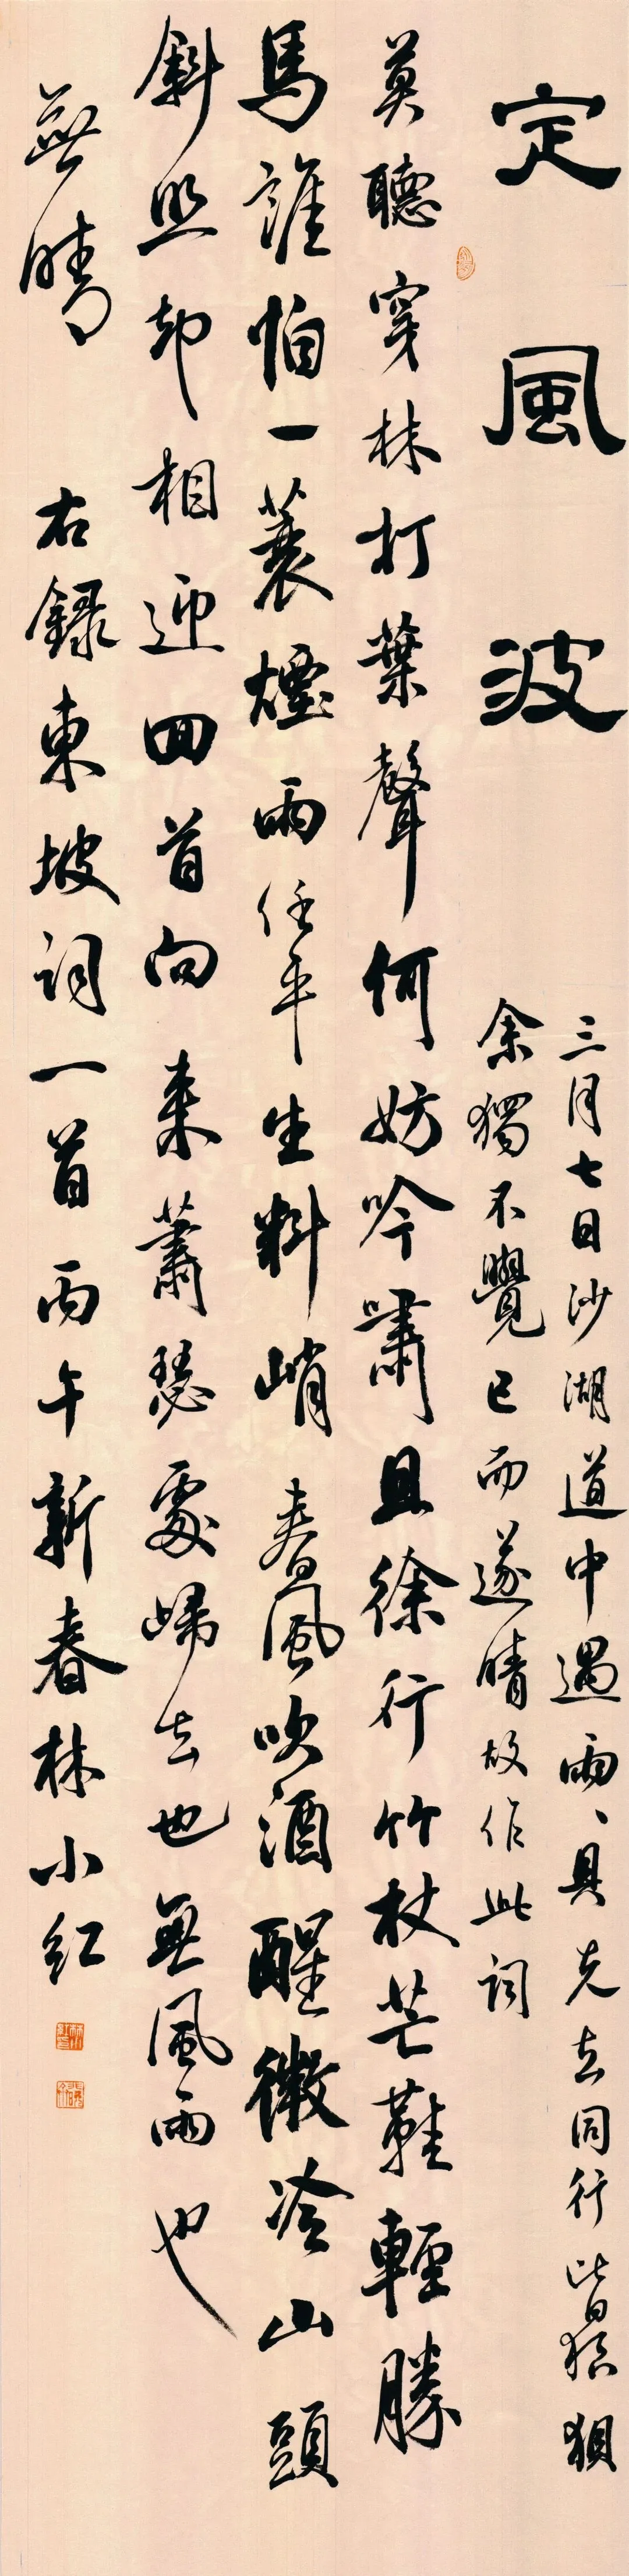 定風波
三月七日沙湖道中遇雨、具先去同行皆狼狽
余獨不覺已而遂晴故作此詞
莫聽穿林打葉聲何妨吟嘯且徐行竹杖芒鞋輕勝
馬誰怕一蓑煙雨任平生料峭春風吹酒醒微冷山頭
斜照却相迎回首向來蕭瑟處歸去也無風雨也
無晴
右錄東坡詞一首丙午新春林小紅